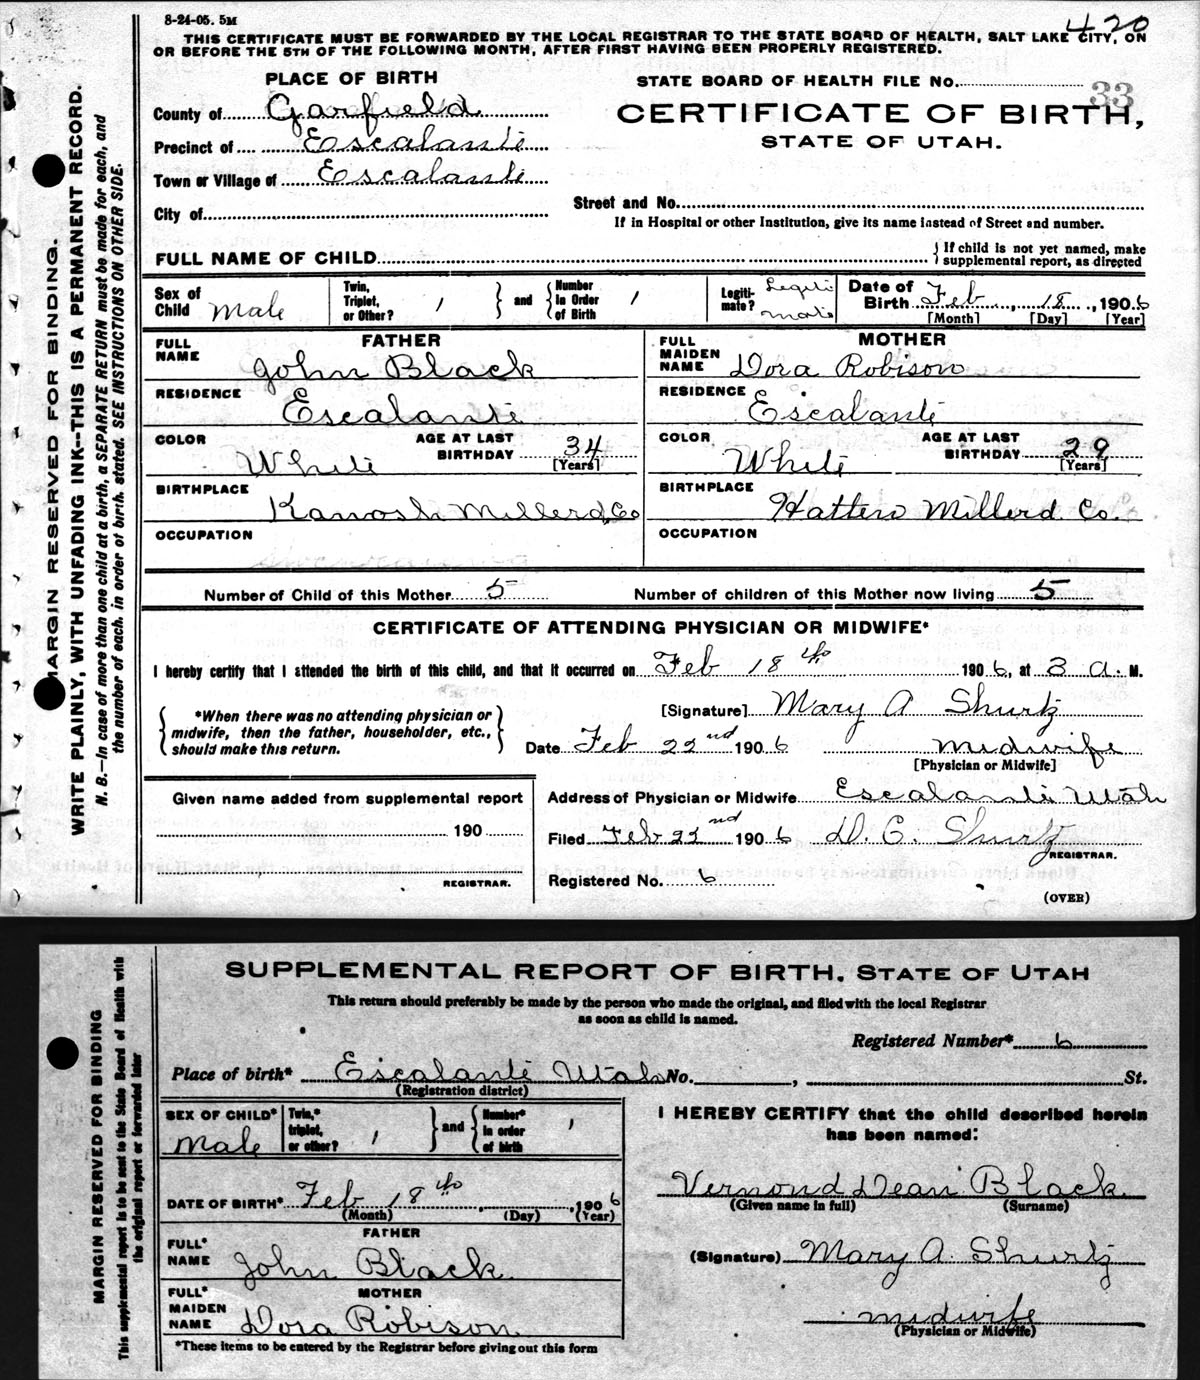 8-24-05. 5M
420
THIS CERTIFICATE MUST BE FORWARDED BY THE LOCAL REGISTRAR TO THE STATE BOARD OF HEALTH, SALT LAKE CITY, ON
OR BEFORE THE 5TH OF THE FOLLOWING MONTH, AFTER FIRST HAVING BEEN PROPERLY REGISTERED.
MARGIN RESERVED FOR BINDING.
WRITE PLAINLY, WITH UNFADING INK--THIS IS A PERMANENT RECORD.
N. B.—In case of more than one child at a birth, a SEPARATE RETURN must be made for each, and
the number of each, in order of birth, stated. SEE INSTRUCTIONS ON OTHER SIDE.
PLACE OF BIRTH
County of Garfield
Precinct of Escalante
Town or Village of Escalante
City of
STATE BOARD OF HEALTH FILE No. 33
CERTIFICATE OF BIRTH,
STATE OF UTAH.
Street and No.
If in Hospital or other Institution, give its name instead of Street and number.
FULL NAME OF CHILD
{ If child is not yet named, make
supplemental report, as directed
Sex of Child Male
Twin, Triplet, or Other? 1
and
Number in Order of Birth 1
Legiti-mate? Legitimate
Date of Birth Feb, 18, 1906
[Month] [Day] [Year]
FATHER
FULL NAME John Black
RESIDENCE Escalante
COLOR White AGE AT LAST BIRTHDAY 34
[Years]
BIRTHPLACE Kanosh Millerd Co
OCCUPATION
MOTHER
FULL MAIDEN NAME Dora Robison
RESIDENCE Escalante
COLOR White AGE AT LAST BIRTHDAY 29
[Years]
BIRTHPLACE Hatten Millerd Co.
OCCUPATION
Number of Child of this Mother 5 Number of children of this Mother now living 5
CERTIFICATE OF ATTENDING PHYSICIAN OR MIDWIFE*
I hereby certify that I attended the birth of this child, and that it occurred on Feb 18 th 1906, at 3 a. M.
*When there was no attending physician or
midwife, then the father, householder, etc.,
should make this return.
[Signature] Mary A Shurtz
Date Feb 22nd 1906 midwife
[Physician or Midwife]
Given name added from supplemental report
190
REGISTRAR.
Address of Physician or Midwife Escalante Utah
Filed Feb 22nd 1906 D. C. Shurtz
REGISTRAR.
Registered No. 6
(OVER)
MARGIN RESERVED FOR BINDING
This supplemental report is to be sent to the State Board of Health with
the original report or forwarded later
SUPPLEMENTAL REPORT OF BIRTH. STATE OF UTAH
This return should preferably be made by the person who made the original, and filed with the local Registrar
as soon as child is named.
Registered Number* 6
Place of birth* Escalante Utah No. , St.
(Registration district)
SEX OF CHILD* Male
Twin,* triplet, or other? 1
and
Number* in order of birth 1
DATE OF BIRTH* Feb 18th, 1906
(Month) (Day) (Year)
FATHER
FULL* NAME John Black
MOTHER
FULL* MAIDEN NAME Dora Robison
*These items to be entered by the Registrar before giving out this form
I HEREBY CERTIFY that the child described herein
has been named:
Vernond Dean Black
(Given name in full) (Surname)
(Signature) Mary A. Shurtz
midwife
(Physician or Midwife)